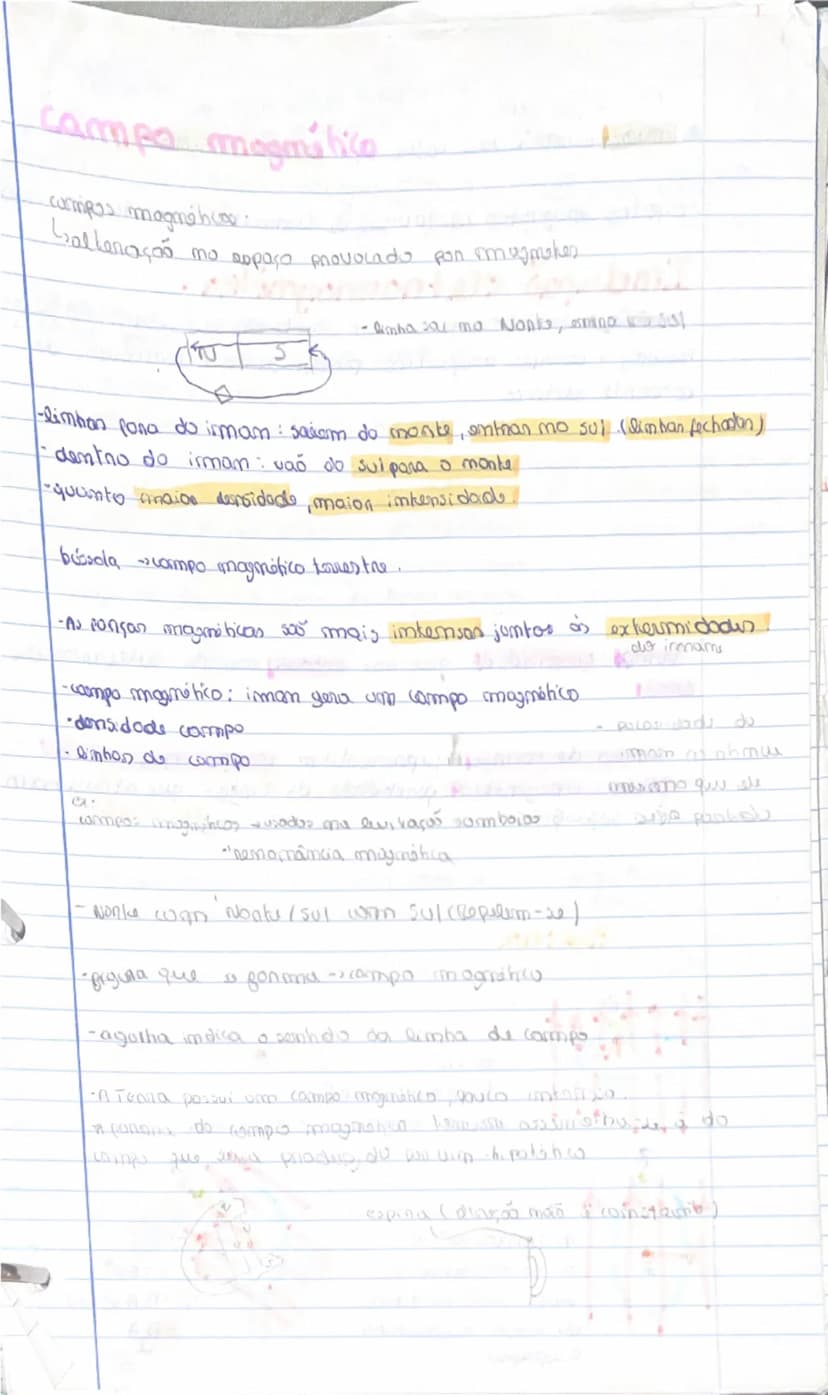 campo magnético
campos magnéticos:
↳ alteração no espaço provocado por magnetes
- linha sai no Norte, entra no sul
N S
- linhas fora do irman: saiem do norte, entran no sul (linhas fechadas)
- dentro do irman: vaõ do sul para o norte
- quanto maior densidade, maior intensidade.
bússola → campo magnético terrestre.
- As forças magnéticas saõ mais intensas juntos às extermidades
dos irmans
- campo magnético: irman gera um campo magnético
• densidade campo
- linhas de campo
ex:
campos magnéticos → usados na levitaçaõ comboios
→ ressonância magnética
- Norte com Norte / sul com sul (Repelem-se)
- figura que se forma → campo magnético
- agulha indica o sentido da linha de campo
- A Terra possui um campo magnético, pouco intenso.
A forma do campo magnético terrestre
campo que seria produzido por um hipotético
espira (direçaõ naõ é constante)